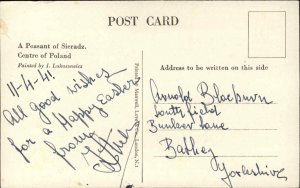 POST CARD
A Peasant of Sieradz.
Centre of Poland
Painted by J. Lukasiewicz
11-4-41.
All good wishes
for a Happy Easter
from
Address to be written on this side
Arnold Blackburn
Southfield
Bunkers Lane
Batley
Yorkshire